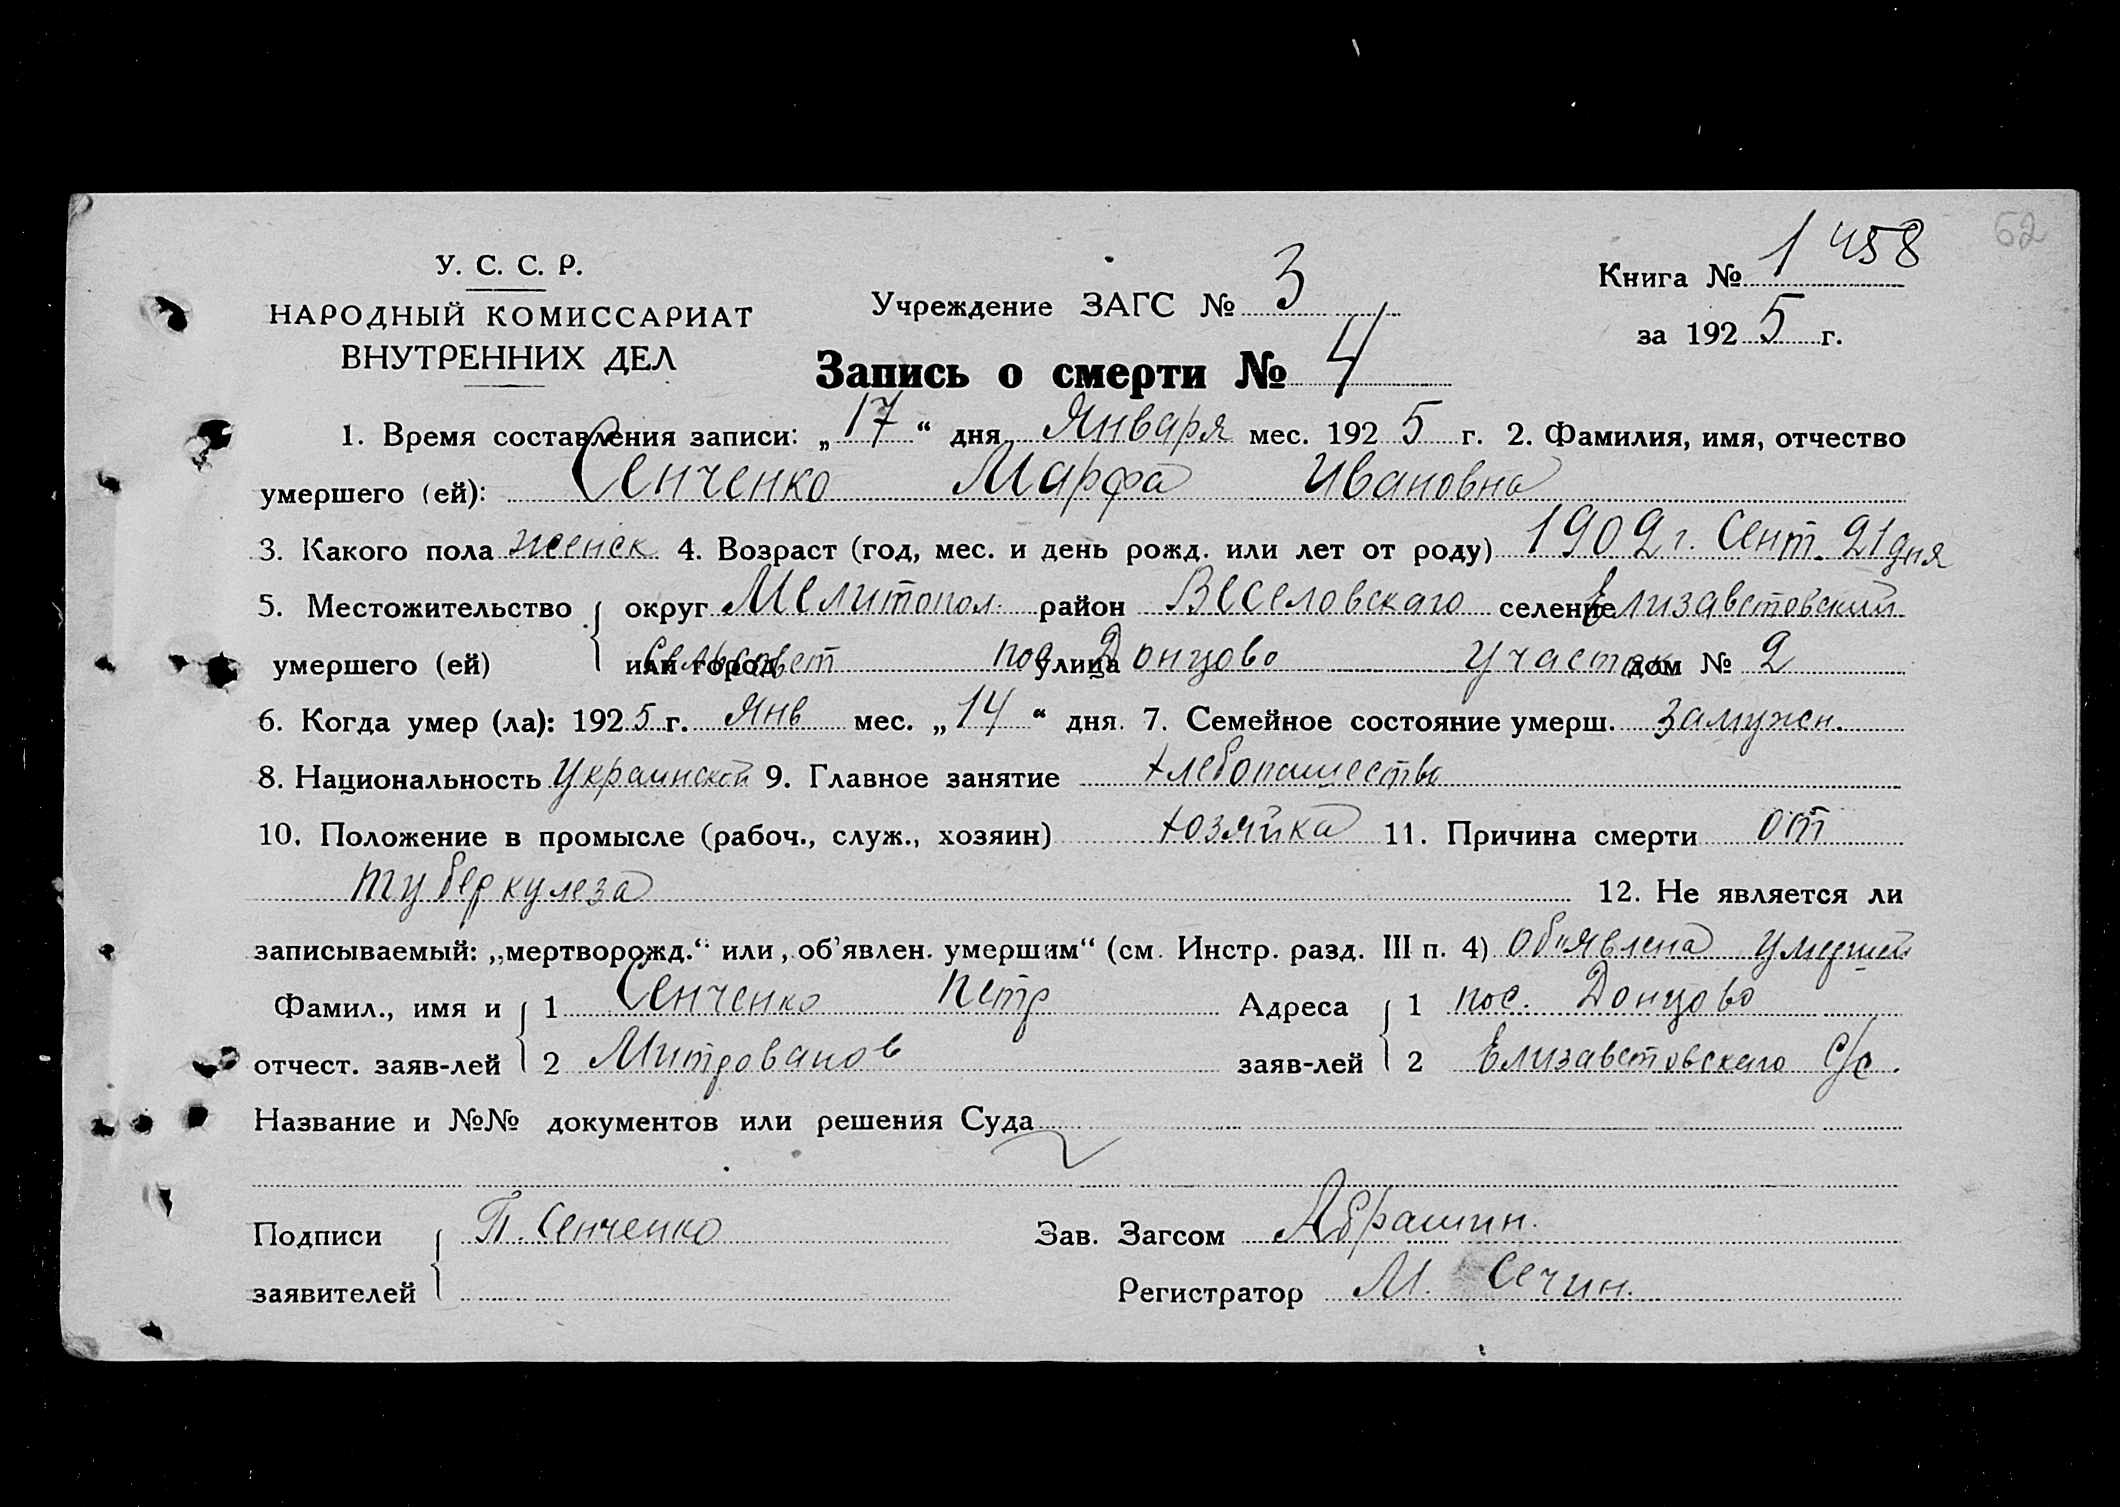 62
У. С. С. Р.
НАРОДНЫЙ КОМИССАРИАТ
ВНУТРЕННИХ ДЕЛ
Учреждение ЗАГС № 3
Книга № 1 458
за 1925 г.
Запись о смерти № 4
1. Время составления записи: „17“ дня Января мес. 1925 г. 2. Фамилия, имя, отчество
умершего (ей): Сенченко Марфа Ивановна
3. Какого пола женск 4. Возраст (год, мес. и день рожд. или лет от роду) 1902 г. Сент. 21 дня
5. Местожительство округ Мелитопол. район Веселовскаго селение Елизаветовский
умершего (ей) или город сельсовет улица пос Донцово участок дом № 2
6. Когда умер (ла): 1925 г. Янв мес. „14“ дня. 7. Семейное состояние умерш. Замужн.
8. Национальность Украинской 9. Главное занятие хлебопашество
10. Положение в промысле (рабоч., служ., хозяин) хозяйка 11. Причина смерти от
туберкулеза 12. Не является ли
записываемый: „мертворожд.“ или „об’явлен. умершим“ (см. Инстр. разд. III п. 4) об"явлена умершей
Фамил., имя и 1 Сенченко Петр Адреса 1 пос. Донцово
отчест. заяв-лей 2 Митрованов заяв-лей 2 Елизаветовскаго с/с.
Название и №№ документов или решения Суда
Подписи П. Сенченко Зав. Загсом Абрашин.
заявителей Регистратор М. Сечин.